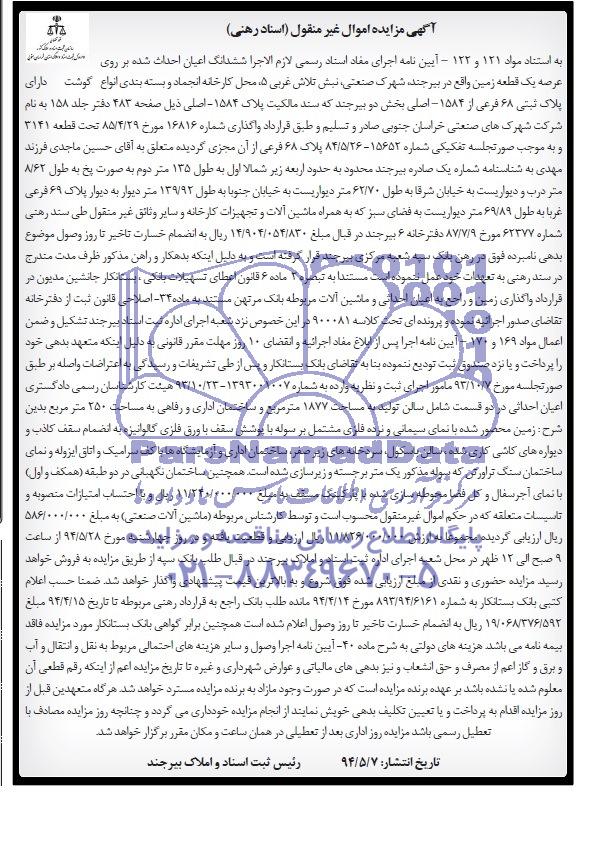 آگهی مزایده اموال غیر منقول (اسناد رهنی)
به استناد مواد ۱۲۱ و ۱۲۲ - آیین نامه اجرای مفاد اسناد رسمی لازم الاجرا ششدانگ اعیان احداث شده بر روی
عرصه یک قطعه زمین واقع در بیرجند، شهرک صنعتی، نبش تلاش غربی ۵، محل کارخانه انجماد و بسته بندی انواع گوشت دارای
پلاک ثبتی ۶۸ فرعی از ۱۵۸۴- اصلی بخش دو بیرجند که سند مالکیت پلاک ۱۵۸۴- اصلی ذیل صفحه ۴۸۳ دفتر جلد ۱۵۸ به نام
شرکت شهرک های صنعتی خراسان جنوبی صادر و تسلیم و طبق قرارداد واگذاری شماره ۱۶۸۱۶ مورخ ۸۵/۴/۲۹ تحت قطعه ۳۱۴۱
و به موجب صورتجلسه تفکیکی شماره ۱۵۶۵۲-۸۴/۵/۲۶ پلاک ۶۸ فرعی از آن مجزی گردیده متعلق به آقای حسین ماجدی فرزند
مهدی به شناسنامه شماره یک صادره بیرجند محدود به حدود اربعه زیر شمالا اول به طول ۱۳۵ متر دوم به صورت پخ به طول ۸/۶۲
متر درب و دیواریست به خیابان شرقا به طول ۶۲/۷۰ متر دیواریست به خیابان جنوبا به طول ۱۳۹/۹۲ متر دیوار به دیوار پلاک ۶۹ فرعی
غربا به طول ۶۹/۸۹ متر دیواریست به فضای سبز که به همراه ماشین آلات و تجهیزات کارخانه و سایر وثائق غیر منقول طی سند رهنی
شماره ۶۲۳۷۷ مورخ ۸۷/۷/۹ دفترخانه ۶ بیرجند در قبال مبلغ ۱۴/۹۰۴/۰۵۴/۸۳۰ ریال به انضمام خسارت تاخیر تا روز وصول موضوع
بدهی نامبرده فوق در رهن بانک سپه شعبه مرکزی بیرجند قرار گرفته است و به دلیل اینکه بدهکار و راهن مذکور ظرف مدت مندرج
در سند رهنی به تعهدات خود عمل ننموده است مستندا به تبصره ۲ ماده ۶ قانون اعطای تسهیلات بانکی، بستانکار جانشین مدیون در
قرارداد واگذاری زمین و راجع به اعیان احداثی و ماشین آلات مربوطه بانک مرتهن مستند به ماده ۳۴- اصلاحی قانون ثبت از دفترخانه
تقاضای صدور اجرائیه نموده و پرونده ای تحت کلاسه ۹۰۰۰۸۱ در این خصوص نزد شعبه اجرای اداره ثبت اسناد بیرجند تشکیل و ضمن
اعمال مواد ۱۶۹ و ۱۷۰ - آیین نامه اجرا پس از ابلاغ مفاد اجرائیه و انقضای ۱۰ روز مهلت مقرر قانونی به دلیل اینکه متعهد بدهی خود
را پرداخت و یا نزد صندوق ثبت تودیع ننموده بنا به تقاضای بانک بستانکار و پس از طی تشریفات و رسیدگی به اعتراضات واصله بر طبق
صورتجلسه مورخ ۹۳/۱۰/۷ مامور اجرای ثبت و نظریه وارده به شماره ۱۳۹۳۰۰۱۰۰۷-۹۳/۱۰/۲۳ هیئت کارشناسان رسمی دادگستری
اعیان احداثی در دو قسمت شامل سالن تولید به مساحت ۱۸۷۷ مترمربع و ساختمان اداری و رفاهی به مساحت ۲۵۰ متر مربع بدین
شرح: زمین محصور شده با نمای سیمانی و نرده فلزی مشتمل بر سوله با پوشش سقف با ورق فلزی گالوانیزه به انضمام سقف کاذب و
دیواره های کاشی کاری شده، سالن باسکول، سردخانه های زیر صفر، ساختمان اداری و آزمایشگاه ها با کف سرامیک و اتاق ایزوله و نمای
ساختمان سنگ تراورتن که سوله مذکور یک متر برجسته و زیرسازی شده است. همچنین ساختمان نگهبانی در دو طبقه (همکف و اول)
با نمای آجرسفال و کل فضا محوطه سازی شده با پارکینگ مسقف به مبلغ ۱۱/۲۴۰/۰۰۰/۰۰۰ ریال و با احتساب امتیازات منصوبه و
تاسیسات متعلقه که در حکم اموال غیرمنقول محسوب است و توسط کارشناس مربوطه (ماشین آلات صنعتی) به مبلغ ۵۸۶/۰۰۰/۰۰۰
ریال ارزیابی گردیده مجموعا به ارزش ۱۱/۸۲۶/۰۰۰/۰۰۰ ریال ارزیابی و قطعیت یافته و در روز چهارشنبه مورخ ۹۴/۵/۲۸ از ساعت
۹ صبح الی ۱۲ ظهر در محل شعبه اجرای اداره ثبت اسناد و املاک بیرجند در قبال طلب بانک سپه از طریق مزایده به فروش خواهد
رسید. مزایده حضوری و نقدی از مبلغ ارزیابی شده فوق شروع و به بالاترین قیمت پیشنهادی واگذار خواهد شد. ضمنا حسب اعلام
کتبی بانک بستانکار به شماره ۸۹۳/۹۴/۶۱۶۱ مورخ ۹۴/۴/۱۴ مانده طلب بانک راجع به قرارداد رهنی مربوطه تا تاریخ ۹۴/۴/۱۵ مبلغ
۱۹/۰۶۸/۳۷۶/۵۹۲ ریال به انضمام خسارت تاخیر تا روز وصول اعلام شده است همچنین برابر گواهی بانک بستانکار مورد مزایده فاقد
بیمه نامه می باشد. هزینه های دولتی به شرح ماده ۴۰- آیین نامه اجرا وصول و سایر هزینه های احتمالی مربوط به نقل و انتقال و آب
و برق و گاز اعم از مصرف و حق انشعاب و نیز بدهی های مالیاتی و عوارض شهرداری و غیره تا تاریخ مزایده اعم از اینکه رقم قطعی آن
معلوم شده یا نشده باشد بر عهده برنده مزایده است که در صورت وجود مازاد به برنده مزایده مسترد خواهد شد. هرگاه متعهدین قبل از
روز مزایده اقدام به پرداخت و یا تعیین تکلیف بدهی خویش نمایند از انجام مزایده خودداری می گردد و چنانچه روز مزایده مصادف با
تعطیل رسمی باشد مزایده روز اداری بعد از تعطیلی در همان ساعت و مکان مقرر برگزار خواهد شد.
تاریخ انتشار: ۹۴/۵/۷ رئیس ثبت اسناد و املاک بیرجند
ParsNamadData
پایگاه اطلاع رسانی مناقصه و مزایده
۰۲۱-۸۸۳۴۹۶۷۰-۵